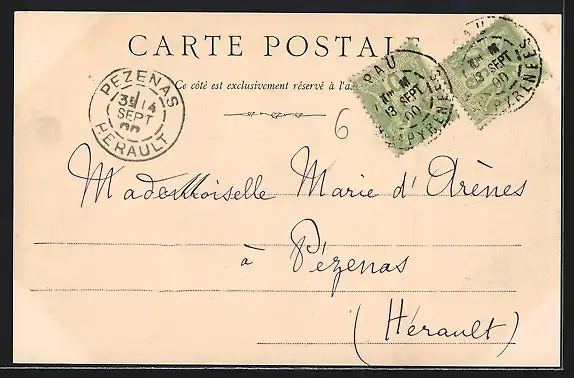 CARTE POSTALE
Ce côté est exclusivement réservé à l'a
PEZENAS
3E 14
SEPT
00
HERAULT
PAU
13 SEPT
00
PYRENEES
PAU
13 SEPT
00
PYRENEES
6
Mademoiselle Marie d'Arènes
à Pézenas
(Hérault)